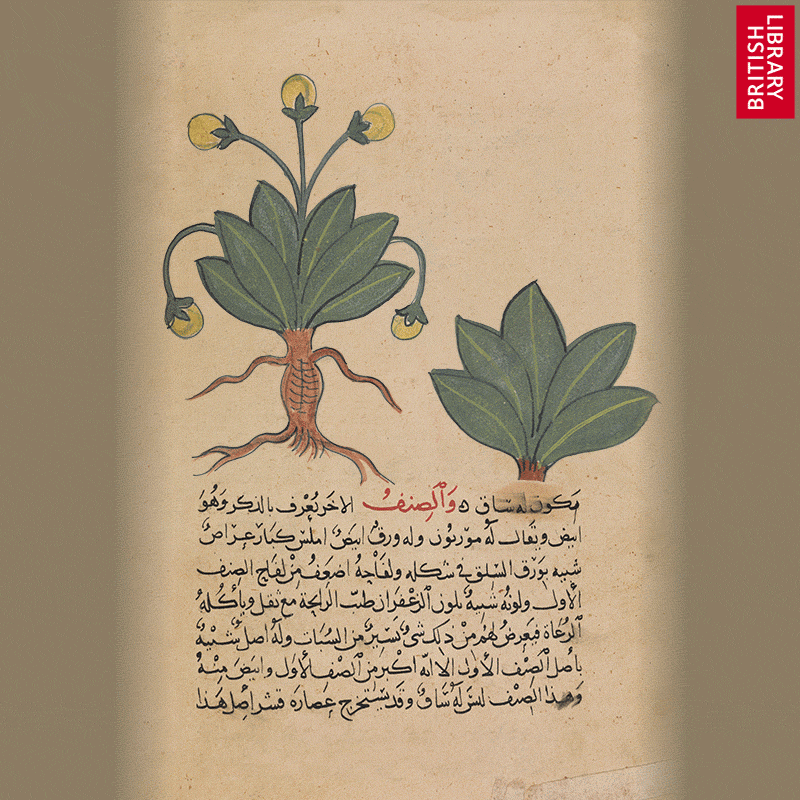 BRITISH
LIBRARY
يكون له ساق ه وَالصِنفُ الاخر يُعْرف بالذكر وَهُوَ
ابيض ويقال له مورنون وله ورق ابيض املس كبار عراض
شبيه بورق السلق في شكله ولفاحه اضعف من لفاح الصنف
الأول ولونه شبيه بلون الزعفران طيب الرايحة مع ثقل ويأكله
الرعاة فيعرض لهم من ذلك شئ يسير من السبات وله اصل شبيه
باصل الصنف الأول الا انه اكبر من الصنف الأول وابيض منه
وهذا الصنف ليس له ساق وقد يستخرج عصارة قشر اصل هذا